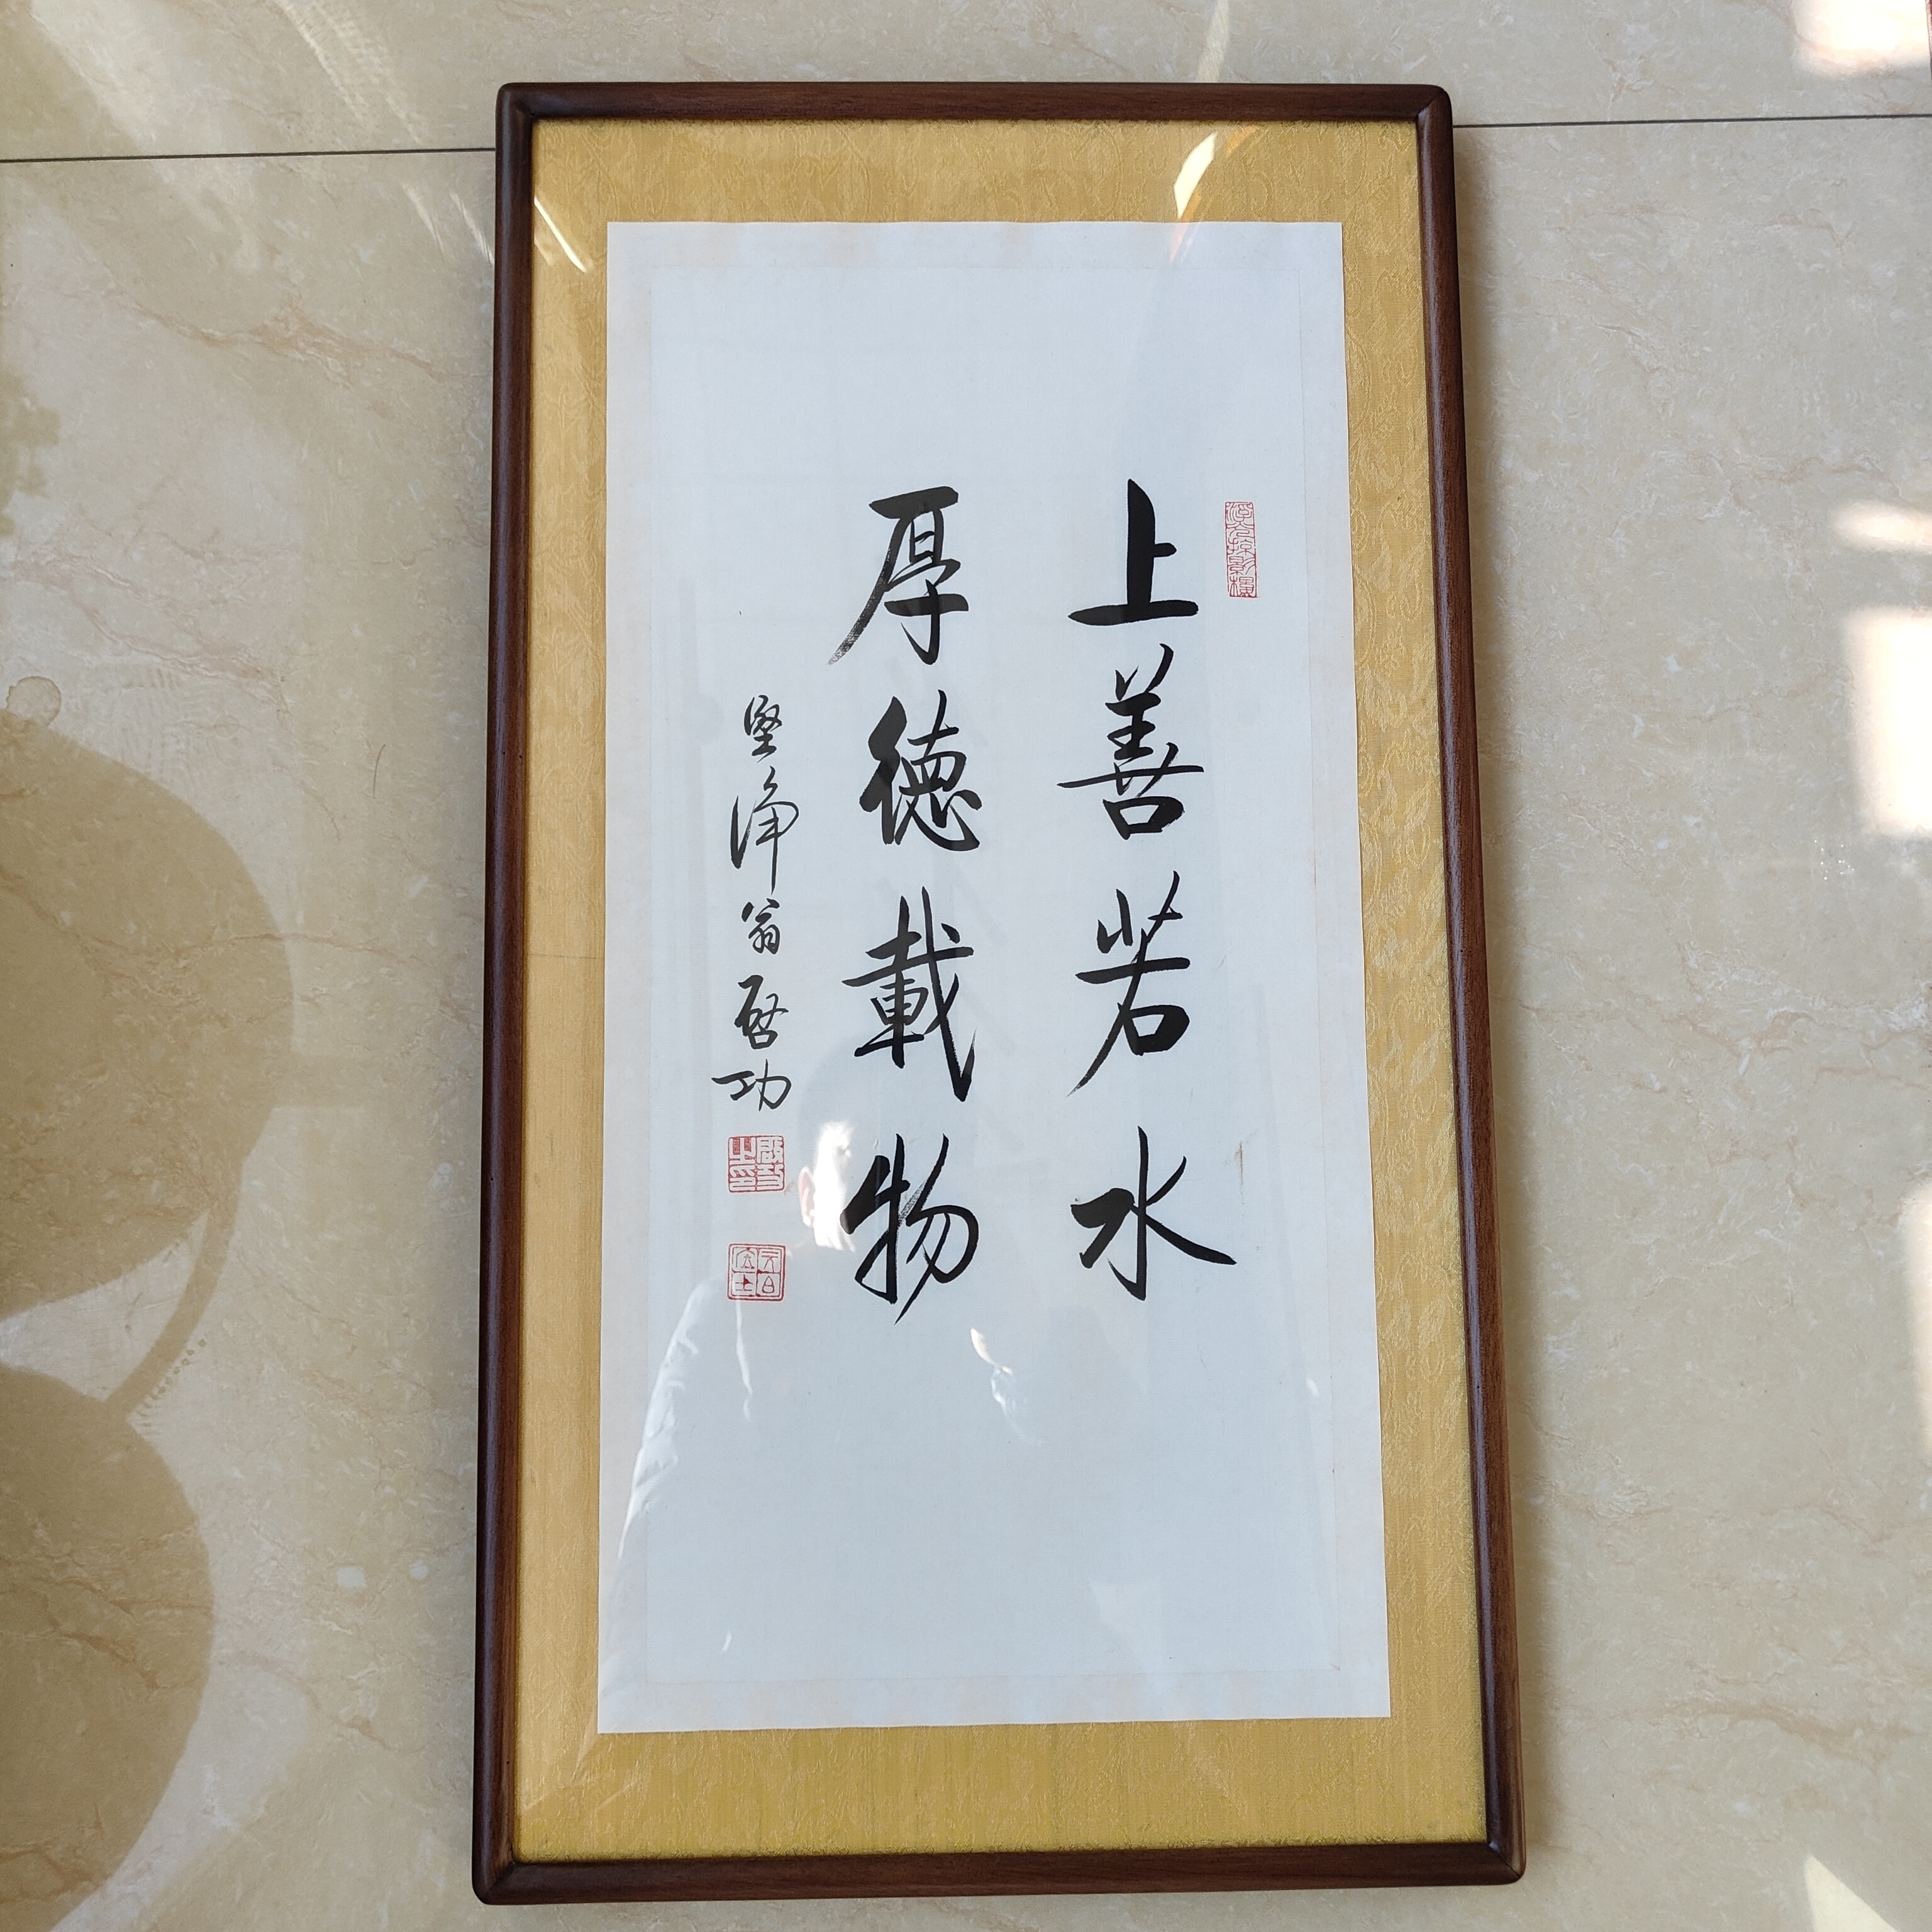 上善若水
厚德載物
堅淨翁啓功
啟功之印
元白居士